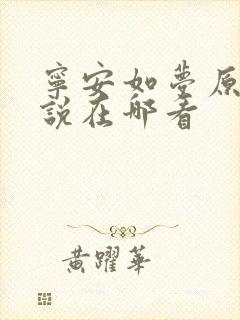 寧安如夢原
說在哪看
黃躍華